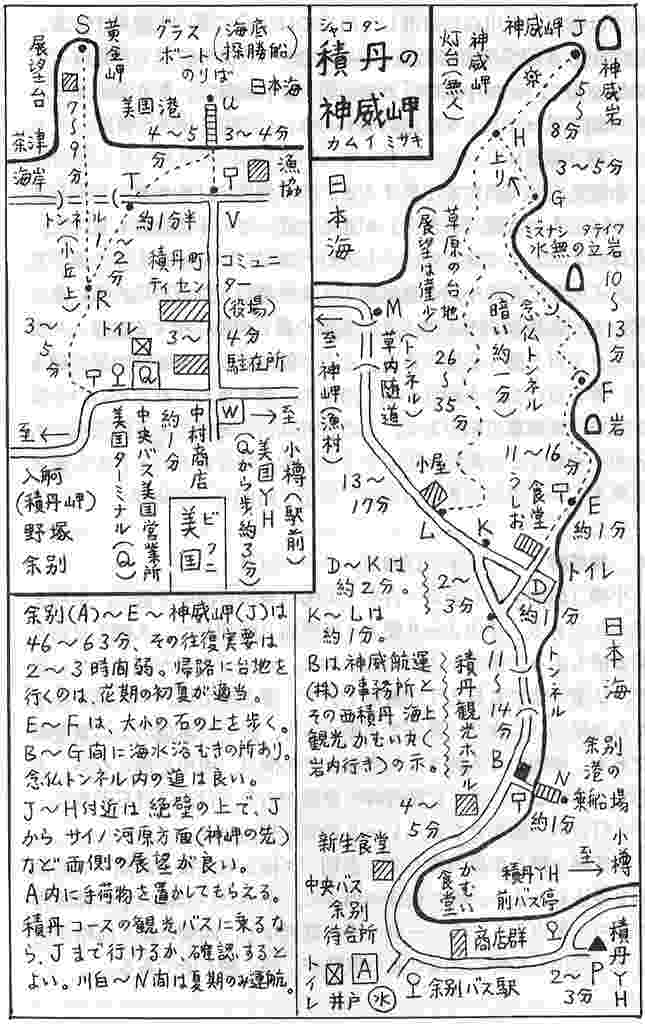 シャコタン
積丹の
神威岬
カムイミサキ
S
黄金岬
展望台
7〜9分
茶津海岸
グラスボートのりば
(海底探勝船)
日本海
美国港
U
4〜5分
3〜4分
漁協
T
V
トンネル
約1分半
1〜2分
(小丘上)
R
積丹町コミュニティセンター
(役場)
3〜4分
駐在所
トイレ
3〜5分
Q
W
至←
入舸
(積丹岬)
野塚
余別
中央バス美国営業所
美国ターミナル(Q)
中村商店
約1分
→至、小樽(駅前)
美国YH
(Qから歩約3分)
ビクニ
美国
神威岬
J
神威岩
神威岬
灯台(無人)
5〜8分
H
上り
3〜5分
G
日本海
ミズナシノタテイワ
水無の立岩
草原の台地
(展望は僅少)
10〜13分
念仏トンネル
(暗い約一分)
M
F
岩
至、神岬(漁村)
草内隧道
(トンネル)
26〜35分
11〜16分
小屋
食堂うしお
E
約1分
13〜17分
L
K
D
トイレ
D〜Kは
約2分。
K〜Lは
約1分。
2〜3分
C
約1分
トンネル
日本海
Bは神威航運
(株)の事務所と
その西積丹海上
観光かむい丸(
岩内行き)の示。
積丹観光ホテル
11〜14分
B
N
余別港の乗船場
約1分
4〜5分
新生食堂
小樽
至→
かむい食堂
積丹YH
前バス停
中央バス
余別
待合所
商店群
P
積丹YH
2〜3分
トイレ
A
井戸
水
余別バス駅
余別(A)〜E〜神威岬(J)は
46〜63分、その往復実要は
2〜3時間弱。帰路に台地を
行くのは、花期の初夏が適当。
E〜Fは、大小の石の上を歩く。
B〜G間に海水浴むきの所あり。
念仏トンネル内の道は良い。
J〜H付近は絶壁の上で、J
からサイノ河原方面(神岬の先)
など両側の展望が良い。
A内に手荷物を置かしてもらえる。
積丹コースの観光バスに乗るな
ら、Jまで行けるか、確認すると
よい。川白〜N間は夏期のみ運航。